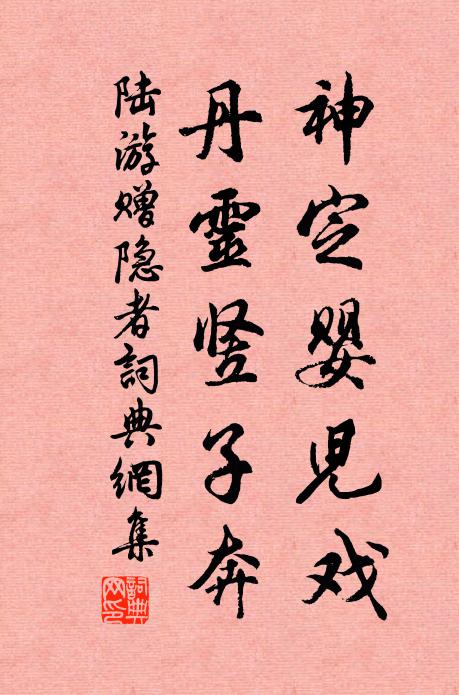 神定婴兒戏
丹靈竖子奔
陆游赠隐者詞典網集
詞典网印